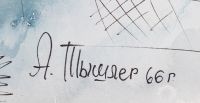 А. Тышлер 66 г